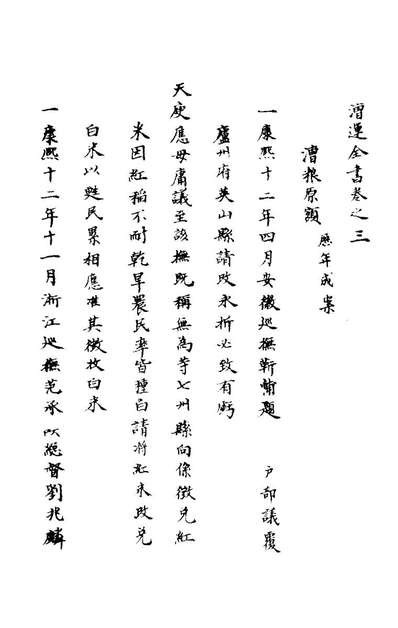 漕運全書卷之三
漕粮原額 歷年成案
一康熙十二年四月安徽巡撫靳輔題 戶部議覆
廬州府英山縣請改永折必致有虧
天庾應毋庸議至該撫既稱無為等七州縣向係徵兌紅
米因紅稻不耐乾旱農民率皆種白請將紅米改兌
白米以甦民累相應准其徵收白米
一康熙十二年十一月浙江巡撫范承以總督劉兆麟